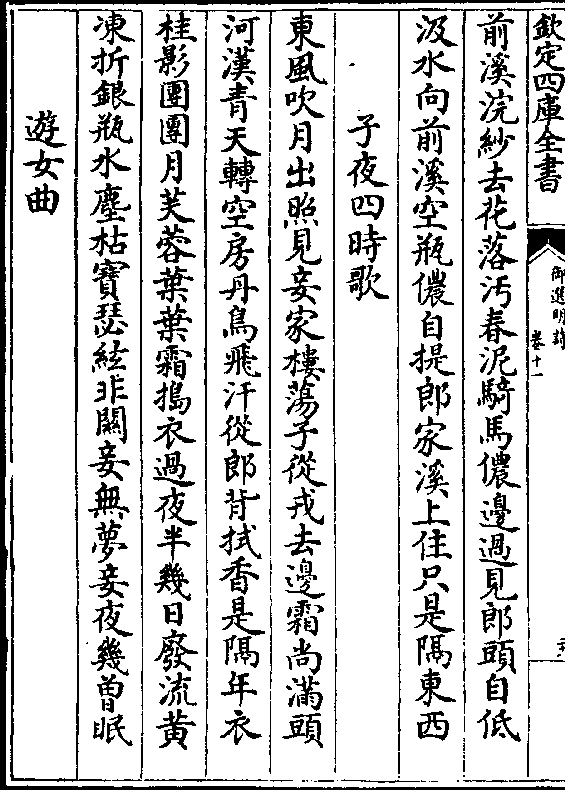 欽定四庫全書
御選明詩
卷十一
前溪浣紗去花落汚春泥騎馬儂邊過見郎頭自低
汲水向前溪空瓶儂自提郎家溪上住只是隔東西
子夜四時歌
東風吹月出照見妾家樓蕩子從戎去邊霜尚滿頭
河漢青天轉空房丹鳥飛汗從郎背拭香是隔年衣
桂影團團月芙蓉葉葉霜搗衣過夜半幾日廢流黃
凍折銀瓶水塵枯寶瑟絃非關妾無夢妾夜幾曽眠
遊女曲